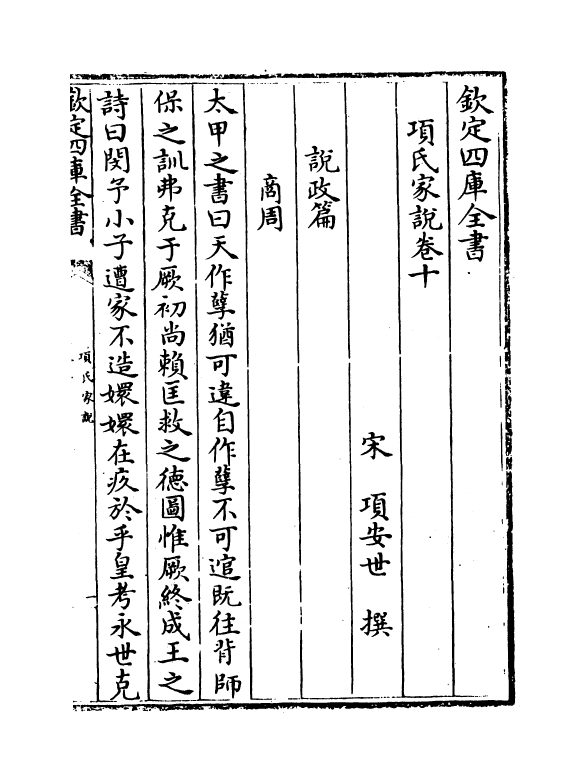 欽定四庫全書
項氏家說卷十
宋　項安世　撰
說政篇
商周
太甲之書曰天作孽猶可違自作孽不可逭既往背師
保之訓弗克于厥初尚賴匡救之德圖惟厥終成王之
詩曰閔予小子遭家不造嬛嬛在疚於乎皇考永世克
欽定四庫全書
項氏家說
一